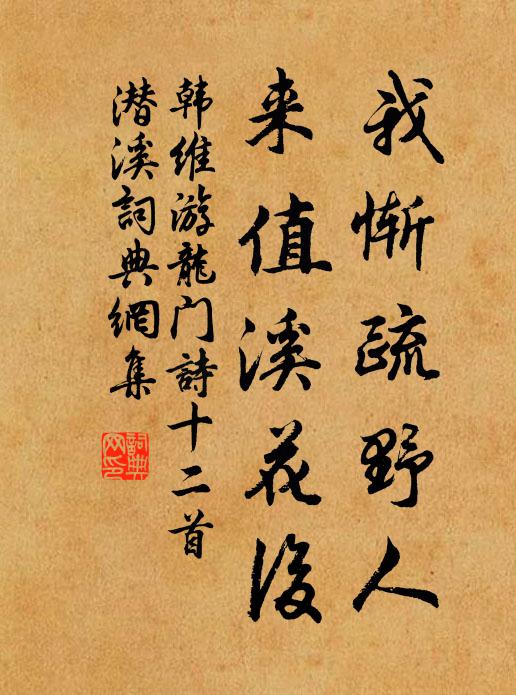 我惭疏野人
来值溪花後
韩维游龍门詩十二首
潜溪詞典網集
詞典
网印